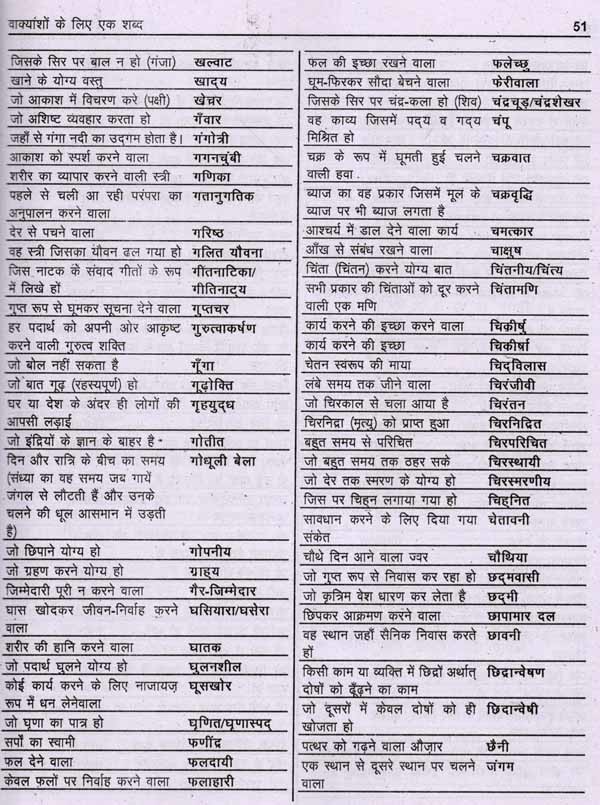 वाक्यांशों के लिए एक शब्द 51
जिसके सिर पर बाल न हो (गंजा) खल्वाट
खाने के योग्य वस्तु खाद्य
जो आकाश में विचरण करे (पक्षी) खेचर
जो अशिष्ट व्यवहार करता हो गँवार
जहाँ से गंगा नदी का उद्गम होता है। गंगोत्री
आकाश को स्पर्श करने वाला गगनचुंबी
शरीर का व्यापार करने वाली स्त्री गणिका
पहले से चली आ रही परंपरा का गतानुगतिक
अनुपालन करने वाला
देर से पचने वाला गरिष्ठ
वह स्त्री जिसका यौवन ढल गया हो गलित यौवना
जिस नाटक के संवाद गीतों के रूप गीतनाटिका/
में लिखे हों गीतिनाट्य
गुप्त रूप से घूमकर सूचना देने वाला गुप्तचर
हर पदार्थ को अपनी ओर आकृष्ट गुरुत्वाकर्षण
करने वाली गुरुत्व शक्ति
जो बोल नहीं सकता है गूँगा
जो बात गूढ़ (रहस्यपूर्ण) हो गूढ़ोक्ति
घर या देश के अंदर ही लोगों की गृहयुद्ध
आपसी लड़ाई
जो इंद्रियों के ज्ञान के बाहर है गोतीत
दिन और रात्रि के बीच का समय गोधूली बेला
(संध्या का वह समय जब गायें
जंगल से लौटती हैं और उनके
चलने की धूल आसमान में उड़ती
है)
जो छिपाने योग्य हो गोपनीय
जो ग्रहण करने योग्य हो ग्राह्य
जिम्मेदारी पूरी न करने वाला गैर-जिम्मेदार
घास खोदकर जीवन-निर्वाह करने घसियारा/घसेरा
वाला
शरीर की हानि करने वाला घातक
जो पदार्थ घुलने योग्य हो घुलनशील
कोई कार्य करने के लिए नाजायज़ घूसखोर
रूप में धन लेनेवाला
जो घृणा का पात्र हो घृणित/घृणास्पद
सर्पों का स्वामी फणींद्र
फल देने वाला फलदायी
केवल फलों पर निर्वाह करने वाला फलाहारी
फल की इच्छा रखने वाला फलेच्छु
घूम-फिरकर सौदा बेचने वाला फेरीवाला
जिसके सिर पर चंद्र-कला हो (शिव) चंद्रचूड़/चंद्रशेखर
वह काव्य जिसमें पद्य व गद्य चंपू
मिश्रित हो
चक्र के रूप में घूमती हुई चलने चक्रवात
वाली हवा
ब्याज का वह प्रकार जिसमें मूल के चक्रवृद्धि
ब्याज पर भी ब्याज लगता है
आश्चर्य में डाल देने वाला कार्य चमत्कार
आँख से संबंध रखने वाला चाक्षुष
चिंता (चिंतन) करने योग्य बात चिंतनीय/चिंत्य
सभी प्रकार की चिंताओं को दूर करने चिंतामणि
वाली एक मणि
कार्य करने की इच्छा करने वाला चिकीर्षु
कार्य करने की इच्छा चिकीर्षा
चेतन स्वरूप की माया चिद्विलास
लंबे समय तक जीने वाला चिरंजीवी
जो चिरकाल से चला आया है चिरंतन
चिरनिद्रा (मृत्यु) को प्राप्त हुआ चिरनिद्रित
बहुत समय से परिचित चिरपरिचित
जो बहुत समय तक ठहर सके चिरस्थायी
जो देर तक स्मरण के योग्य हो चिरस्मरणीय
जिस पर चिह्न लगाया गया हो चिह्नित
सावधान करने के लिए दिया गया चेतावनी
संकेत
चौथे दिन आने वाला ज्वर चौथिया
जो गुप्त रूप से निवास कर रहा हो छद्मवासी
जो कृत्रिम वेश धारण कर लेता है छद्मी
छिपकर आक्रमण करने वाला छापामार दल
वह स्थान जहाँ सैनिक निवास करते छावनी
हों
किसी काम या व्यक्ति में छिद्रों अर्थात् छिद्रान्वेषण
दोषों को ढूँढ़ने का काम
जो दूसरों में केवल दोषों को ही छिद्रान्वेषी
खोजता हो
पत्थर को गढ़ने वाला औज़ार छैनी
एक स्थान से दूसरे स्थान पर चलने जंगम
वाला